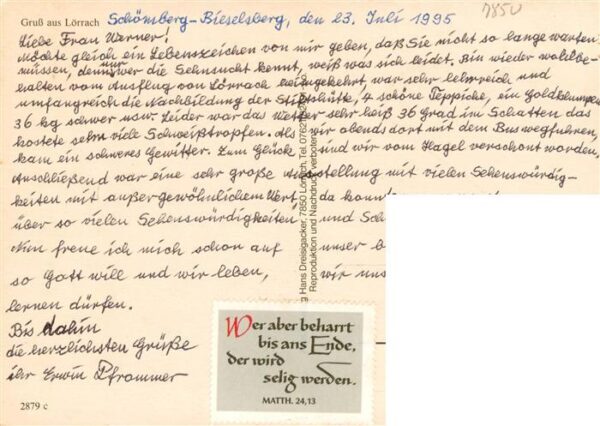 Gruß aus Lörrach
Schömberg-Bieselsberg, den 23. Juli 1995
7850
Liebe Frau Warner!
Möchte gleich ein Lebenszeichen von mir geben, daß Sie nicht so lange warten
müssen, denn nur wer die Sehnsucht kennt, weiß was sich leidet. Bin wieder wohlbe-
halten vom Ausflug von Lörrach heimgekehrt war sehr lehrreich und
umfangreich die Nachbildung der Stiftshütte, 4 schöne Teppiche, ein Goldklumpen
36 kg schwer usw. Leider war das Wetter sehr heiß 36 Grad im Schatten das
kostete sehr viele Schweißtropfen. Als wir abends dort mit dem Bus wegfuhren,
kam ein schweres Gewitter. Zum Glück sind wir vom Hagel verschont worden,
Anschließend war eine sehr große Ausstellung mit vielen Sehenswürdig-
keiten mit außergewöhnlichem Wert da
über so vielen Sehenswürdigkeiten und
Nun freue ich mich schon auf unser
so Gott will und wir leben, wir uns
lernen dürfen.
Bis dahin
die herzlichsten Grüße
ihr Erwin Pfrommer
Hans Dreisigacker, 7850 Lörrach, Tel.
Reproduktion und Nachdruck verboten
Wer aber beharrt
bis ans Ende,
der wird
selig werden.
MATTH. 24,13
2879 c